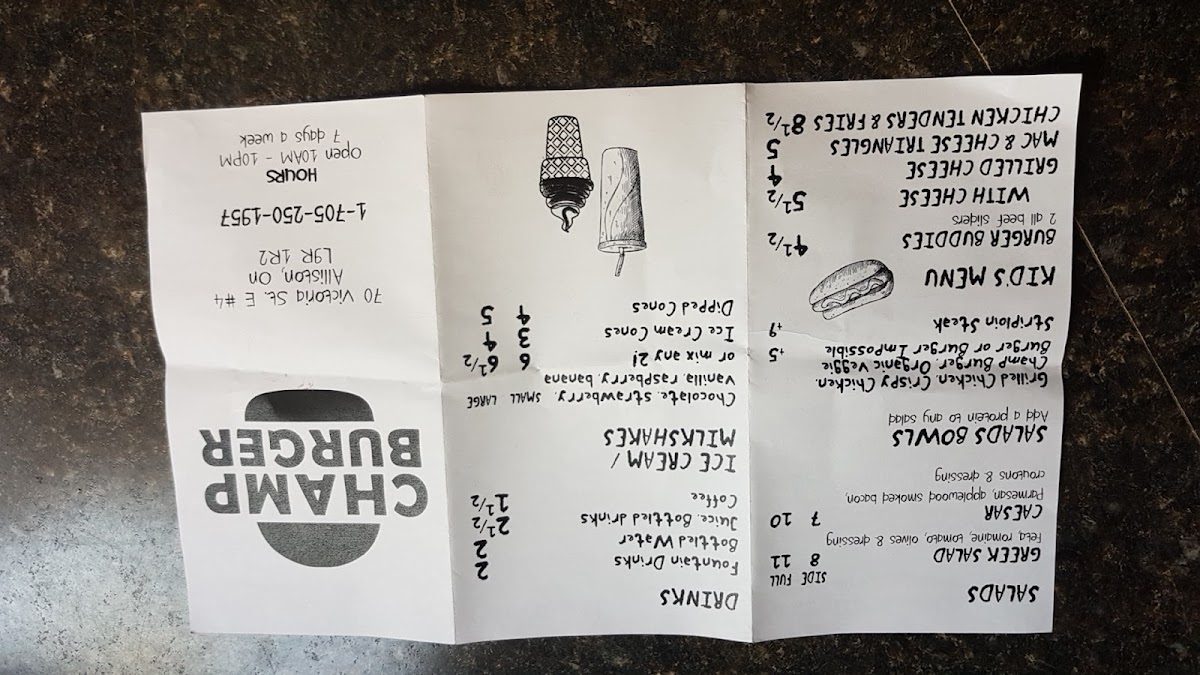 SALADS
SIDE FULL
GREEK SALAD 8 11
Feta, romaine, tomato, olives & dressing
CAESAR 7 10
Parmesan, applewood smoked bacon,
croutons & dressing
SALADS BOWLS
Add a protein to any salad
Grilled Chicken, Crispy Chicken,
Champ Burger, Organic Veggie
Burger or Burger Impossible +5
Striploin Steak +9
KID'S MENU
BURGER BUDDIES 4 1/2
2 all beef sliders
WITH CHEESE 5 1/2
GRILLED CHEESE 4
MAC & CHEESE TRIANGLES 5
CHICKEN TENDERS & FRIES 8 1/2
DRINKS
Fountain Drinks 2
Bottled Water 2
Juice, Bottled drinks 2 1/2
Coffee 1 1/2
ICE CREAM /
MILKSHAKES
Chocolate, strawberry, SMALL LARGE
vanilla, raspberry, banana
or mix any 2! 6 6 1/2
Ice Cream Cones 3 4
Dipped Cones 4 5
CHAMP
BURGER
70 Victoria St. E #4
Alliston, On
L9R 1R2
1-705-250-1957
HOURS
Open 10AM - 10PM
7 days a week